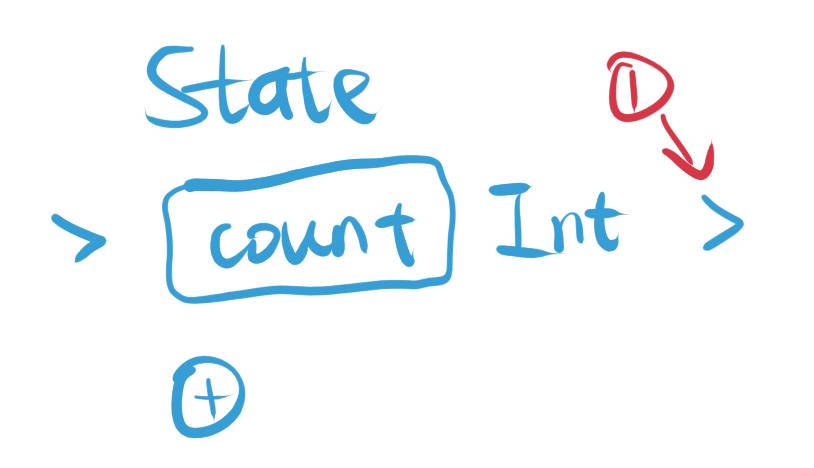 State
①
> count Int >
+